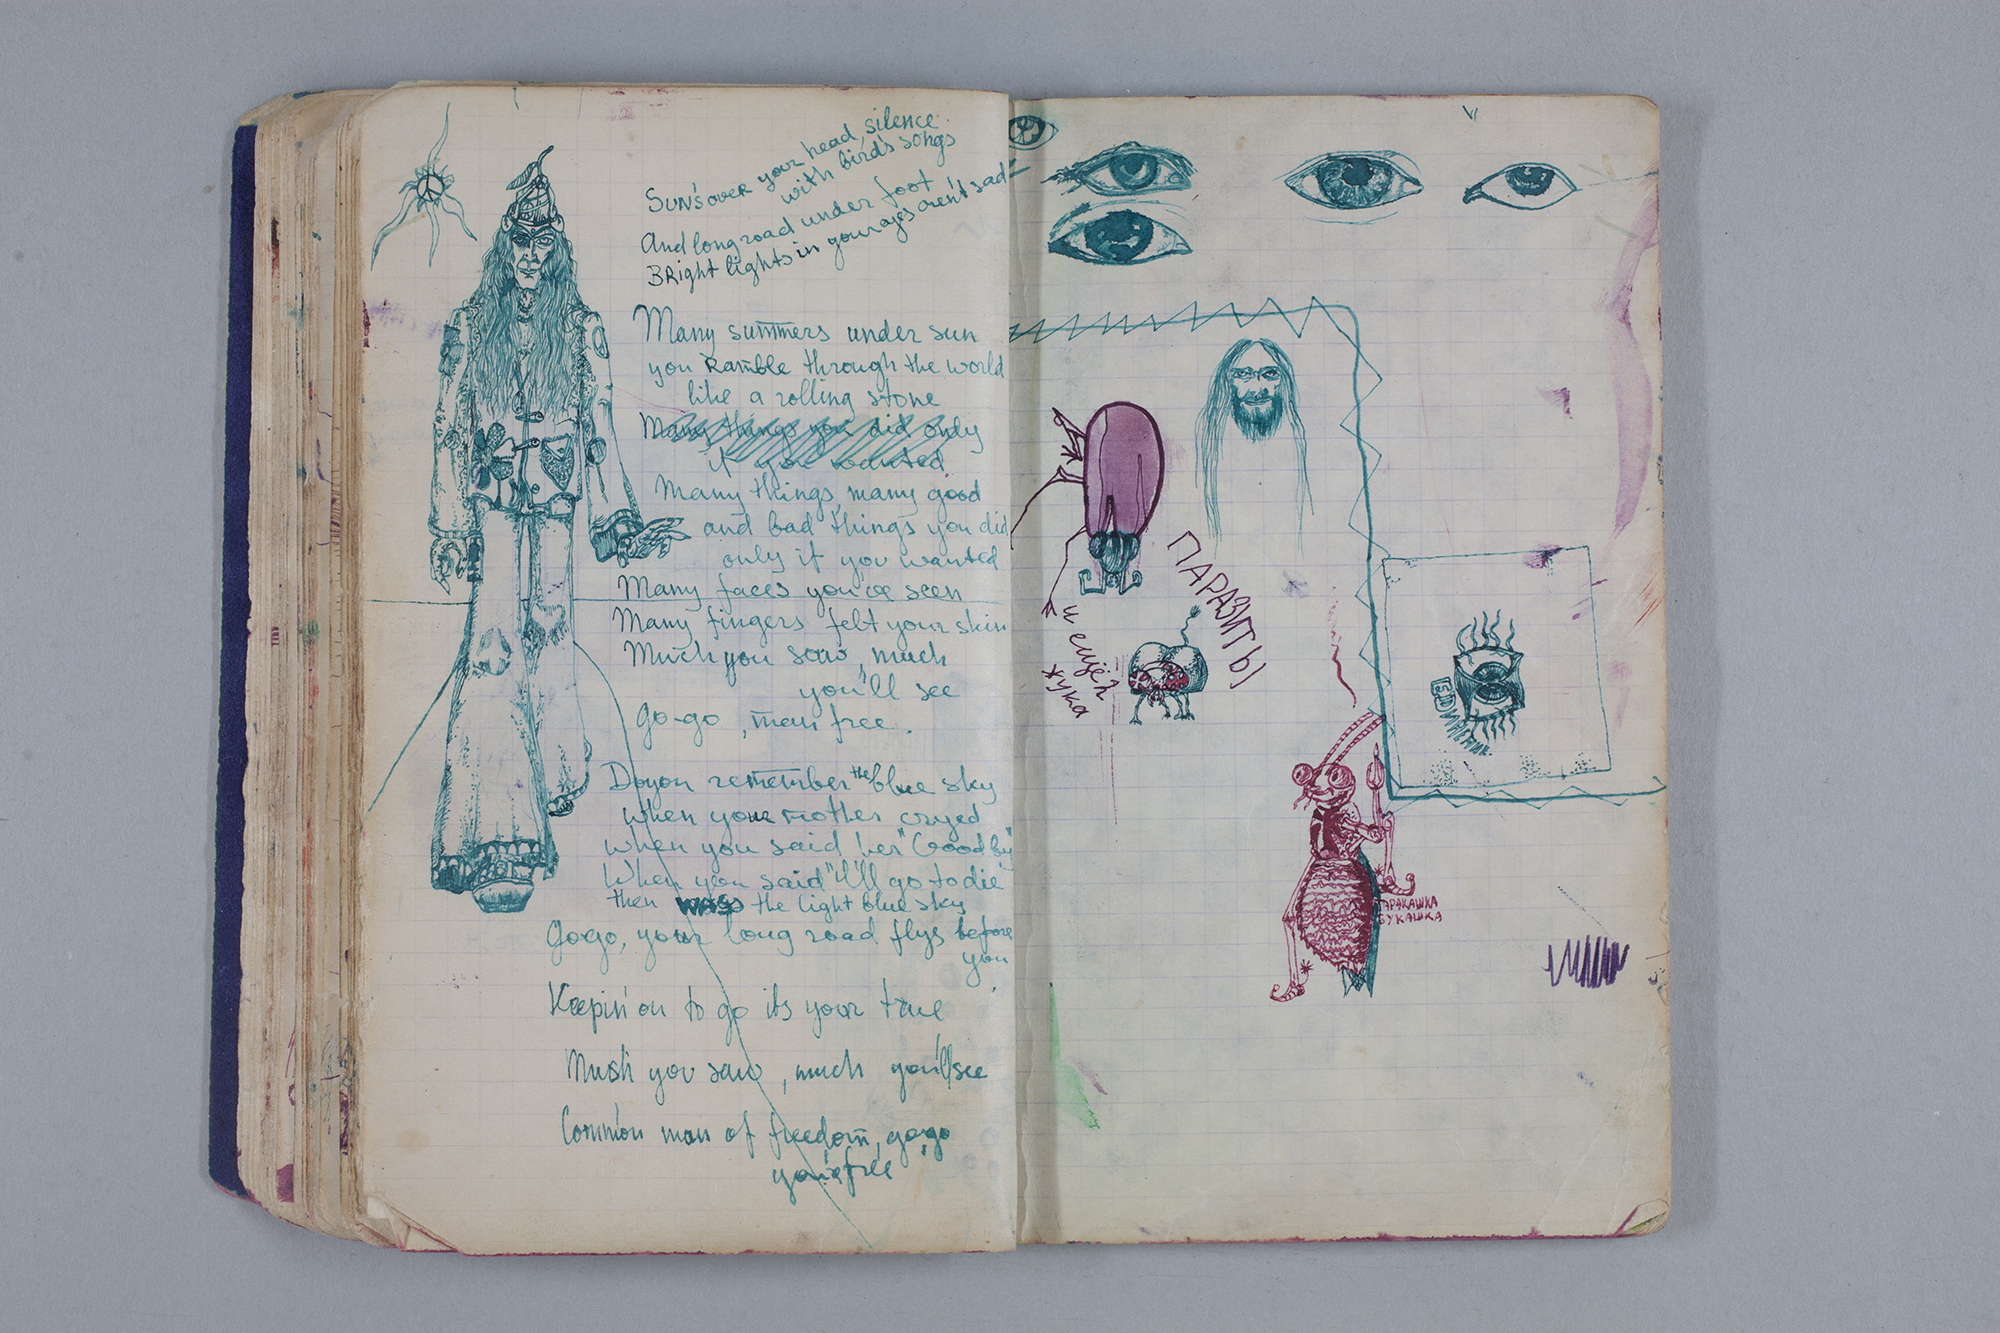 Sun's over your head, silence
with bird's songs
And long road under foot
Bright lights in your ayes aren't sad
Many summers under sun
you Ramble through the world
like a rolling stone
Many things you did only
if you wanted
Many things, many good
and bad things you did
only if you wanted
Many faces you've seen
Many fingers felt your skin
Much you saw, much
you'll see
Go-go, man free.
Do you remember the blue sky
when your mother cryed
when you said her "Good by"
When you said "I'll go to die
then was the light blue sky
Gogo, your long road flys before
you
Keepin' on to go its your true
Mush you saw, much you'll see
Common man of freedom, gogo
you're free
ПАРАЗИТЫ
и ещё 2
жука
ТАРАКАШКА
БУКАШКА